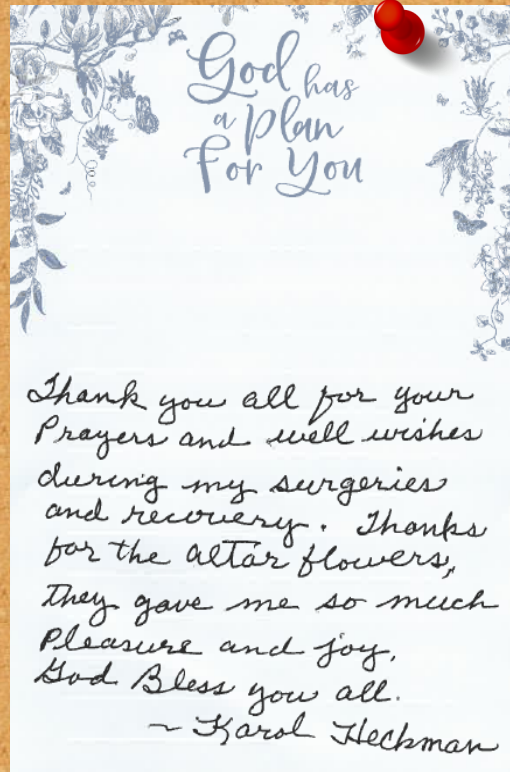 God has
a Plan
For You
Thank you all for your
Prayers and well wishes
during my surgeries
and recovery. Thanks
for the altar flowers,
they gave me so much
Pleasure and joy,
God Bless you all.
~ Karol Heckman